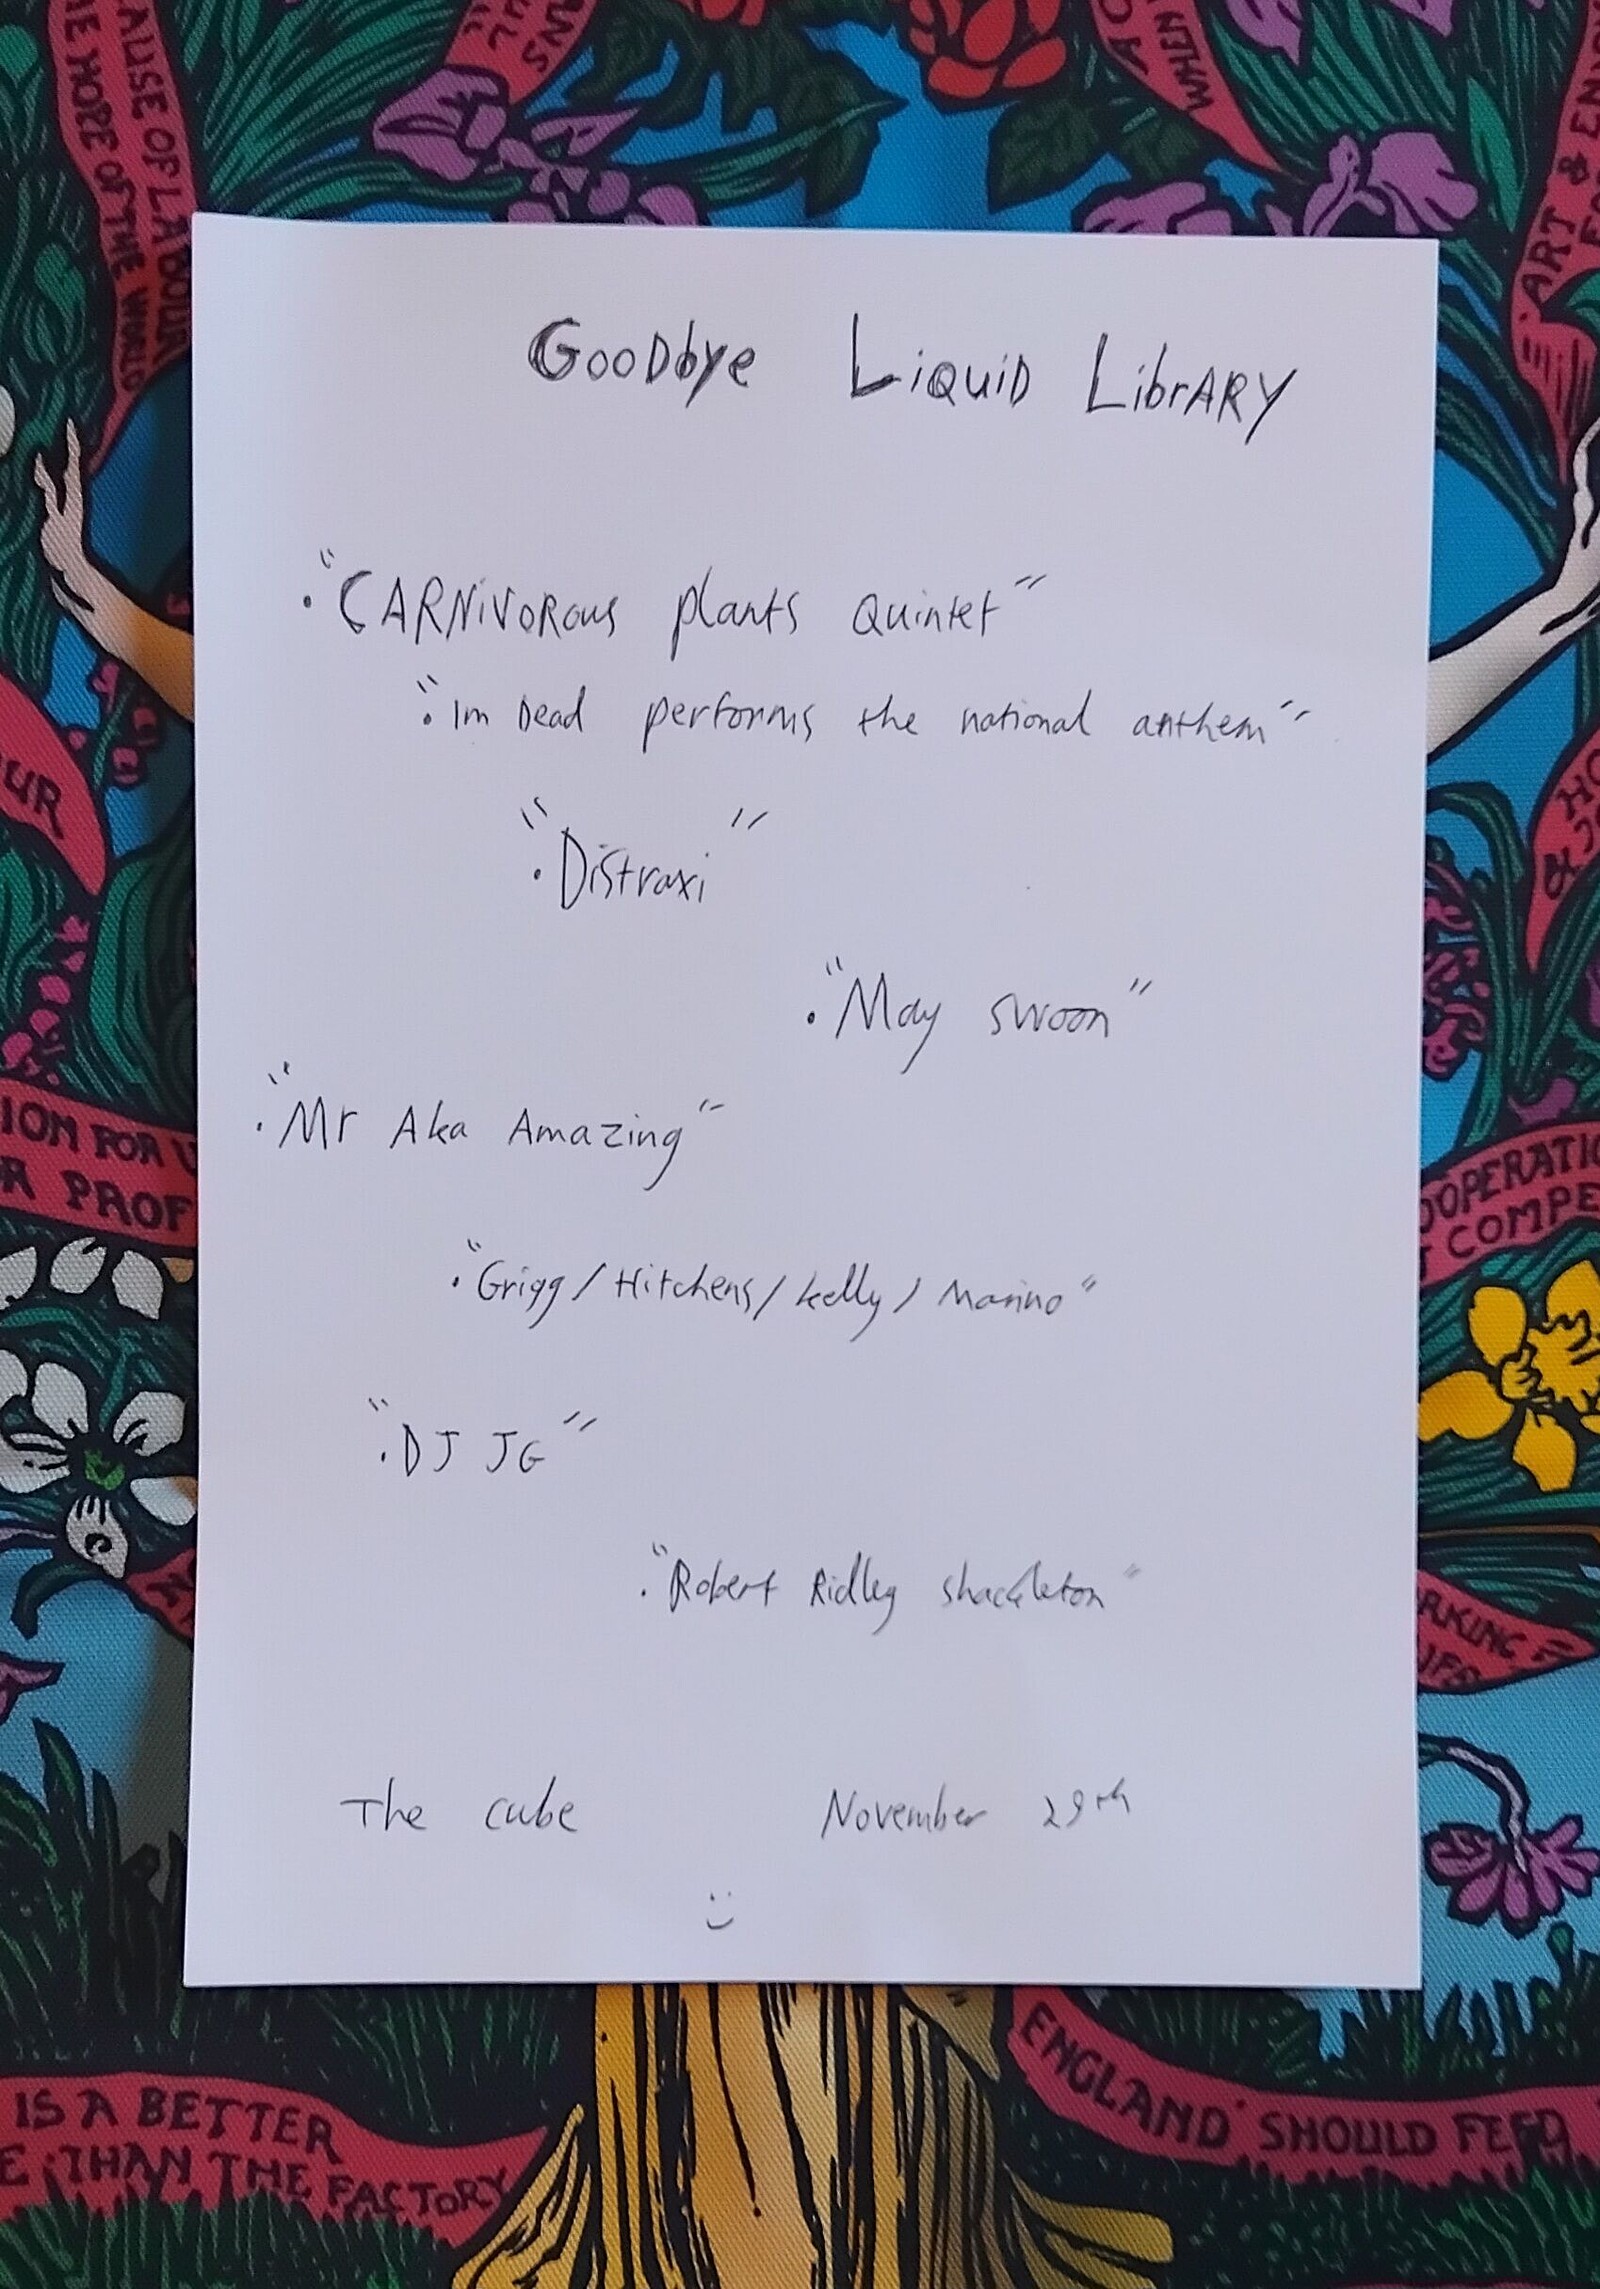 GooDbye LiQuiD LibrARY
."CARNiVoRous plants Quintet"
."Im Dead performs the national anthem"
."Distraxi"
."May swoon"
."Mr Aka Amazing"
."Grigg / Hitchens / kelly / Marino"
."DJ JG"
."Robert Ridley shackleton"
The cube November 29th
:)
AUSE OF LABOUR
HE HOPE OF THE WORLD
WHEN
ART & ENJ
OUR
HO
& J
ION FOR U
OR PROF
OOPERATIO
T COMPE
RKING
LIFE
ENGLAND SHOULD FEED
IS A BETTER
E THAN THE FACTORY